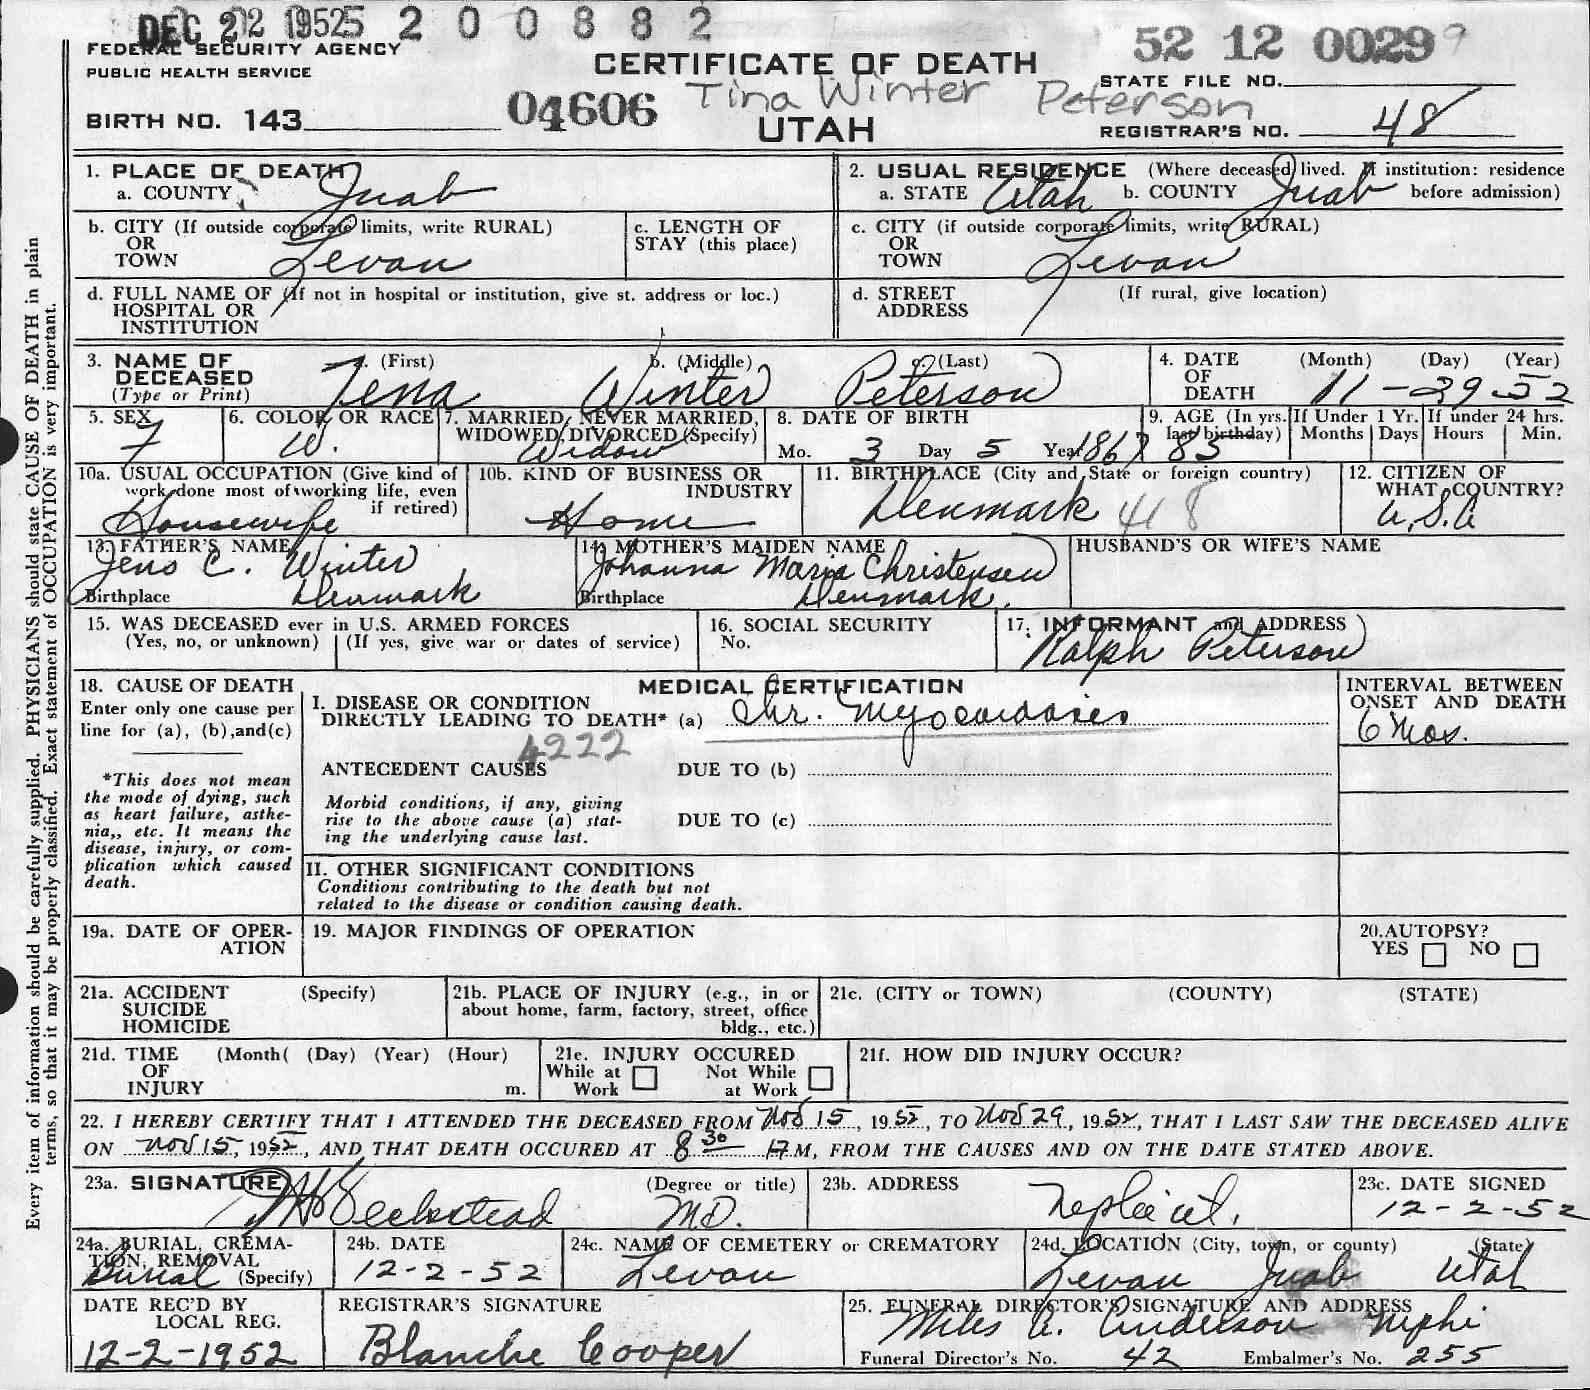 DEC 22 1952 5 2 0 0 8 8 2
52 12 0029 9
FEDERAL SECURITY AGENCY
PUBLIC HEALTH SERVICE
CERTIFICATE OF DEATH
STATE FILE NO.
BIRTH NO. 143
04606
Tina Winter Peterson
UTAH
REGISTRAR'S NO. 48
1. PLACE OF DEATH
a. COUNTY Juab
2. USUAL RESIDENCE (Where deceased lived. If institution: residence before admission)
a. STATE Utah b. COUNTY Juab
b. CITY (If outside corporate limits, write RURAL)
OR
TOWN Levan
c. LENGTH OF
STAY (this place)
c. CITY (if outside corporate limits, write RURAL)
OR
TOWN Levan
d. FULL NAME OF (If not in hospital or institution, give st. address or loc.)
HOSPITAL OR
INSTITUTION
d. STREET
ADDRESS
(If rural, give location)
3. NAME OF
DECEASED
(Type or Print)
a. (First) b. (Middle) c. (Last)
Tena Winter Peterson
4. DATE
OF
DEATH
(Month) (Day) (Year)
11-29-52
5. SEX
F
6. COLOR OR RACE
W.
7. MARRIED, NEVER MARRIED,
WIDOWED, DIVORCED (Specify)
Widow
8. DATE OF BIRTH
Mo. 3 Day 5 Year 1867
9. AGE (In yrs.
last birthday)
85
If Under 1 Yr.
Months Days
If under 24 hrs.
Hours Min.
10a. USUAL OCCUPATION (Give kind of
work done most of working life, even
if retired)
Housewife
10b. KIND OF BUSINESS OR
INDUSTRY
Home
11. BIRTHPLACE (City and State or foreign country)
Denmark 418
12. CITIZEN OF
WHAT COUNTRY?
U.S.A
13. FATHER'S NAME
Jens C. Winter
Birthplace Denmark
14. MOTHER'S MAIDEN NAME
Johanna Maria Christensen
Birthplace Denmark.
HUSBAND'S OR WIFE'S NAME
15. WAS DECEASED ever in U.S. ARMED FORCES
(Yes, no, or unknown) (If yes, give war or dates of service)
16. SOCIAL SECURITY
No.
17. INFORMANT and ADDRESS
Ralph Peterson
18. CAUSE OF DEATH
Enter only one cause per
line for (a), (b),and(c)
*This does not mean
the mode of dying, such
as heart failure, asthe-
nia,, etc. It means the
disease, injury, or com-
plication which caused
death.
MEDICAL CERTIFICATION
I. DISEASE OR CONDITION
DIRECTLY LEADING TO DEATH* (a) Chr. Myocardosis
4222
ANTECEDENT CAUSES DUE TO (b)
Morbid conditions, if any, giving
rise to the above cause (a) stat-
ing the underlying cause last.
DUE TO (c)
II. OTHER SIGNIFICANT CONDITIONS
Conditions contributing to the death but not
related to the disease or condition causing death.
INTERVAL BETWEEN
ONSET AND DEATH
6 Mos.
19a. DATE OF OPER-
ATION
19. MAJOR FINDINGS OF OPERATION
20.AUTOPSY?
YES NO
21a. ACCIDENT (Specify)
SUICIDE
HOMICIDE
21b. PLACE OF INJURY (e.g., in or
about home, farm, factory, street, office
bldg., etc.)
21c. (CITY or TOWN) (COUNTY) (STATE)
21d. TIME (Month( (Day) (Year) (Hour)
OF
INJURY m.
21e. INJURY OCCURED
While at Work Not While at Work
21f. HOW DID INJURY OCCUR?
22. I HEREBY CERTIFY THAT I ATTENDED THE DECEASED FROM Nov 15, 1952, TO Nov 29, 1952, THAT I LAST SAW THE DECEASED ALIVE
ON Nov 15, 1952, AND THAT DEATH OCCURED AT 8 30 M, FROM THE CAUSES AND ON THE DATE STATED ABOVE.
23a. SIGNATURE (Degree or title)
Beckstead M.D.
23b. ADDRESS
Nephi ut.
23c. DATE SIGNED
12-2-52
24a. BURIAL, CREMA-
TION, REMOVAL
(Specify)
Burial
24b. DATE
12-2-52
24c. NAME OF CEMETERY or CREMATORY
Levan
24d. LOCATION (City, town, or county) (State)
Levan Juab Utah
DATE REC'D BY
LOCAL REG.
12-2-1952
REGISTRAR'S SIGNATURE
Blanche Cooper
25. FUNERAL DIRECTOR'S SIGNATURE AND ADDRESS
Miles A. Anderson Nephi
Funeral Director's No. 42 Embalmer's No. 255
Every item of information should be carefully supplied. PHYSICIANS should state CAUSE OF DEATH in plain
terms, so that it may be properly classified. Exact statement of OCCUPATION is very important.